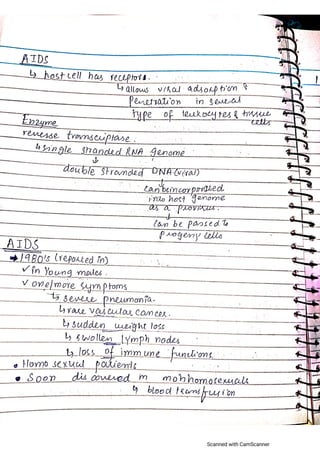 AIDS
↳ host cell has receptors.
↳ allows viral adsorption &
penetration in several
type of leukocytes & tissue
cells
Enzyme
reverse transcriptase.
↳ single stranded RNA genome
↓
double stranded DNA (viral)
↓
can be incorporated
into host genome
as a provirus.
↓
Can be passed to
progeny cells
AIDS
→ 1980's (reported in)
✓ in Young males.
✓ one/more symptoms
↳ severe pneumonia.
↳ rare vascular cancer.
↳ sudden weight loss
↳ swollen lymph nodes
↳ loss of immune functions.
• Homo sexual patients
• Soon discovered in nonhomosexuals
↳ blood transfusion
Scanned with CamScanner